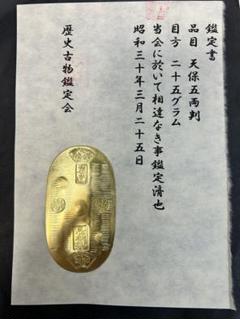 鑑定書
品目 天保五両判
目方 二十五グラム
当会に於いて相違なき事鑑定済也
昭和三十年三月二十五日
歴史古物鑑定会